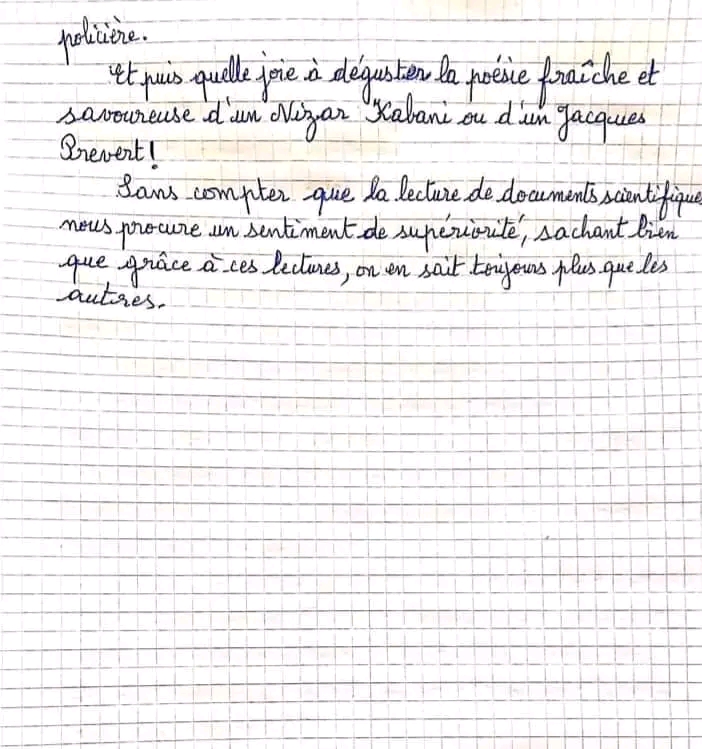 policière.
Et puis quelle joie à déguster la poésie fraîche et
savoureuse d'un Nizar Kabani ou d'un Jacques
Prevert!
Sans compter que la lecture de documents scientifique
nous procure un sentiment de supériorité, sachant bien
que grâce à ces lectures, on en sait toujours plus que les
autres.